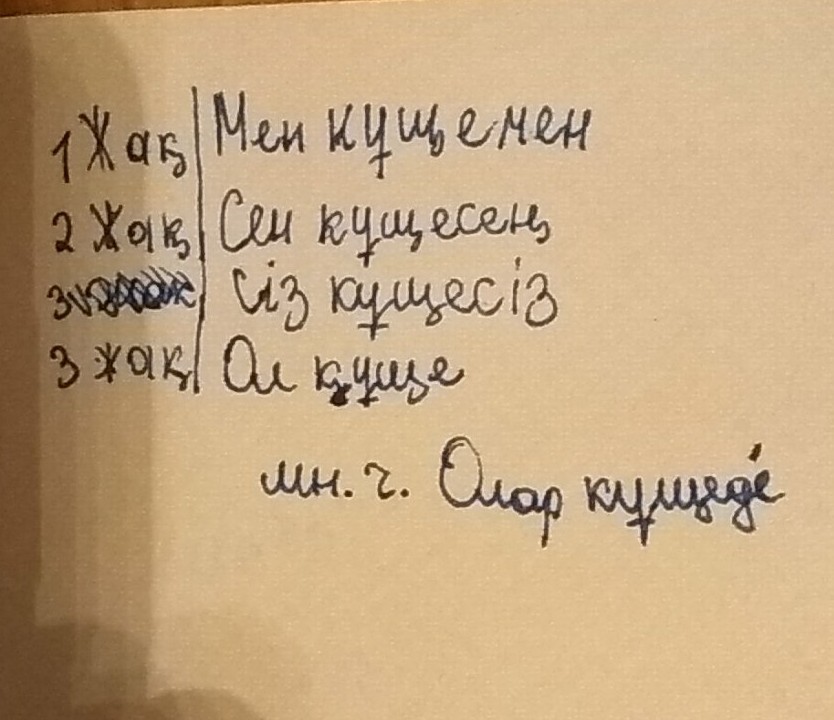 1 Жақ | Мен күщемен
2 Жақ | Сен күщесең
3 | Сіз күщесіз
3 жақ | Ол қүще
мн. ч. Олар күщеді